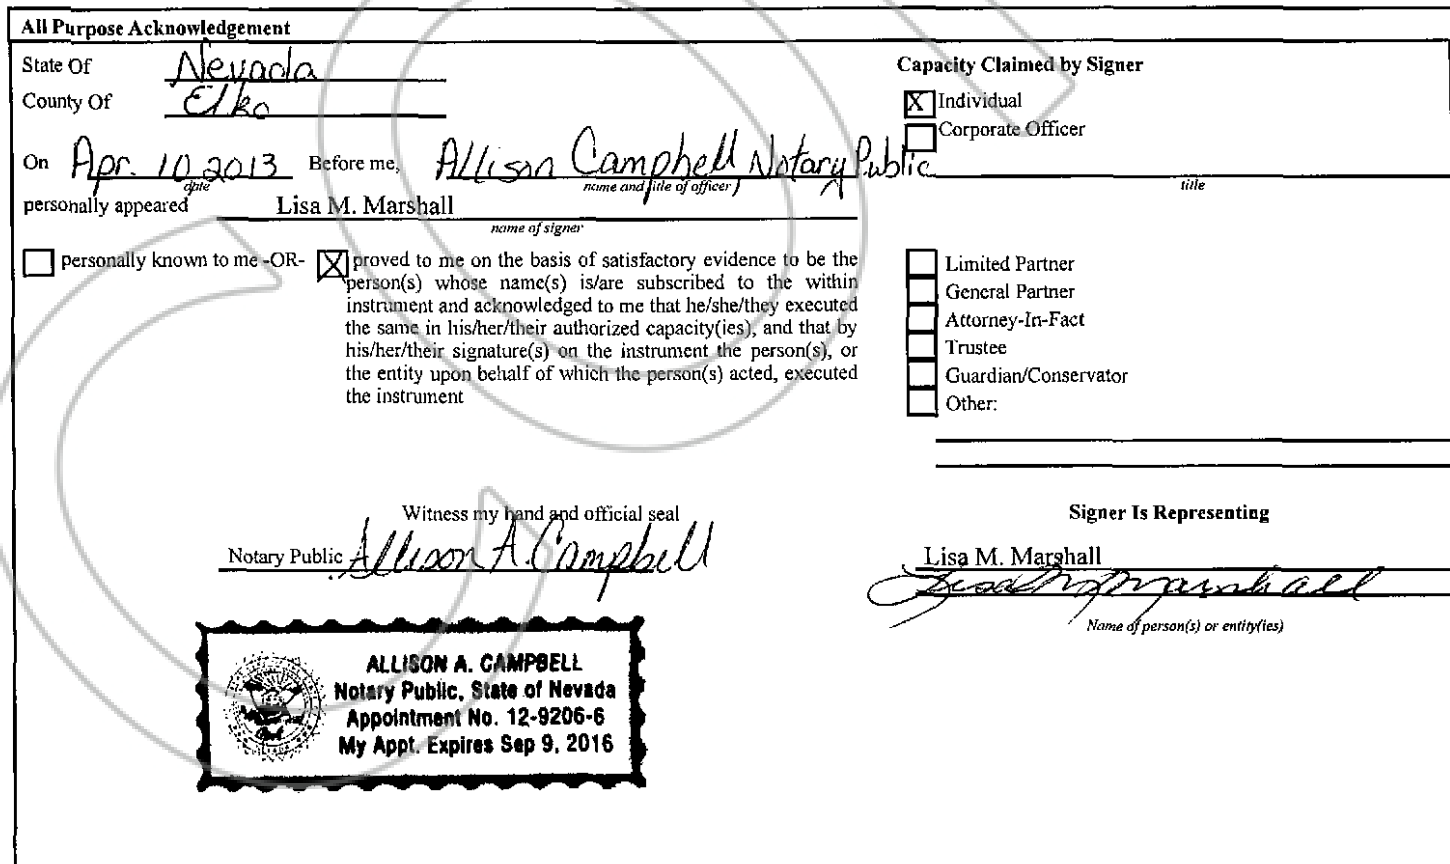 All Purpose Acknowledgement
State Of Nevada
County Of Elko
On Apr. 10 2013 Before me, Allison Campbell Notary Public
date
name and title of officer
personally appeared Lisa M. Marshall
name of signer
personally known to me -OR- X proved to me on the basis of satisfactory evidence to be the
person(s) whose name(s) is/are subscribed to the within
instrument and acknowledged to me that he/she/they executed
the same in his/her/their authorized capacity(ies), and that by
his/her/their signature(s) on the instrument the person(s), or
the entity upon behalf of which the person(s) acted, executed
the instrument
Witness my hand and official seal
Notary Public Allison A. Campbell
ALLISON A. CAMPBELL
Notary Public, State of Nevada
Appointment No. 12-9206-6
My Appt. Expires Sep 9, 2016
Capacity Claimed by Signer
X Individual
Corporate Officer
title
Limited Partner
General Partner
Attorney-In-Fact
Trustee
Guardian/Conservator
Other:
Signer Is Representing
Lisa M. Marshall
Lisa M. Marshall
Name of person(s) or entity(ies)